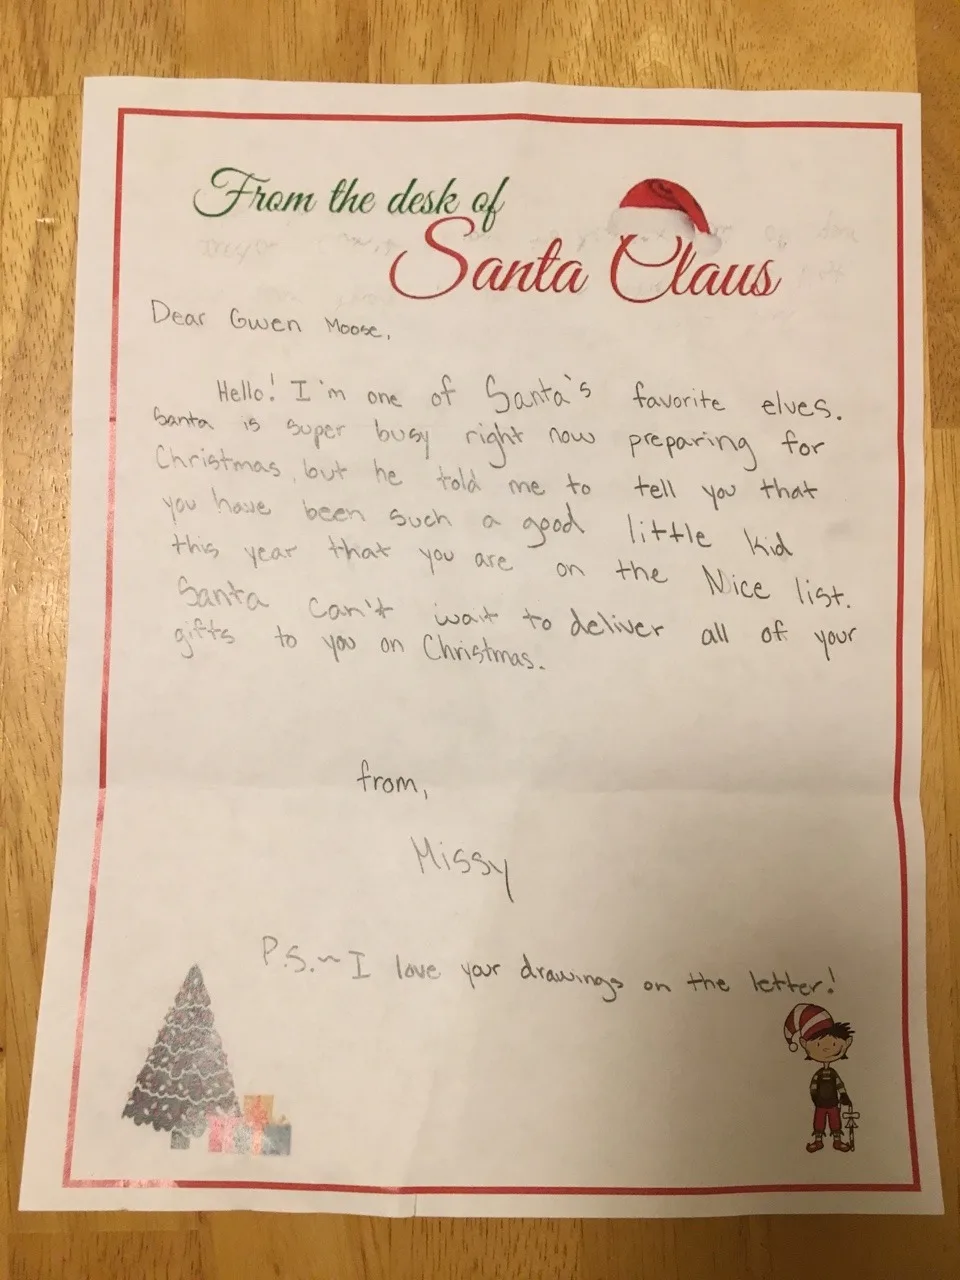 From the desk of
Santa Claus
Dear Gwen Moose,
Hello! I'm one of Santa's favorite elves.
Santa is super busy right now preparing for
Christmas, but he told me to tell you that
you have been such a good little kid
this year that you are on the Nice list.
Santa can't wait to deliver all of your
gifts to you on Christmas.
from,
Missy
P.S.~ I love your drawings on the letter!